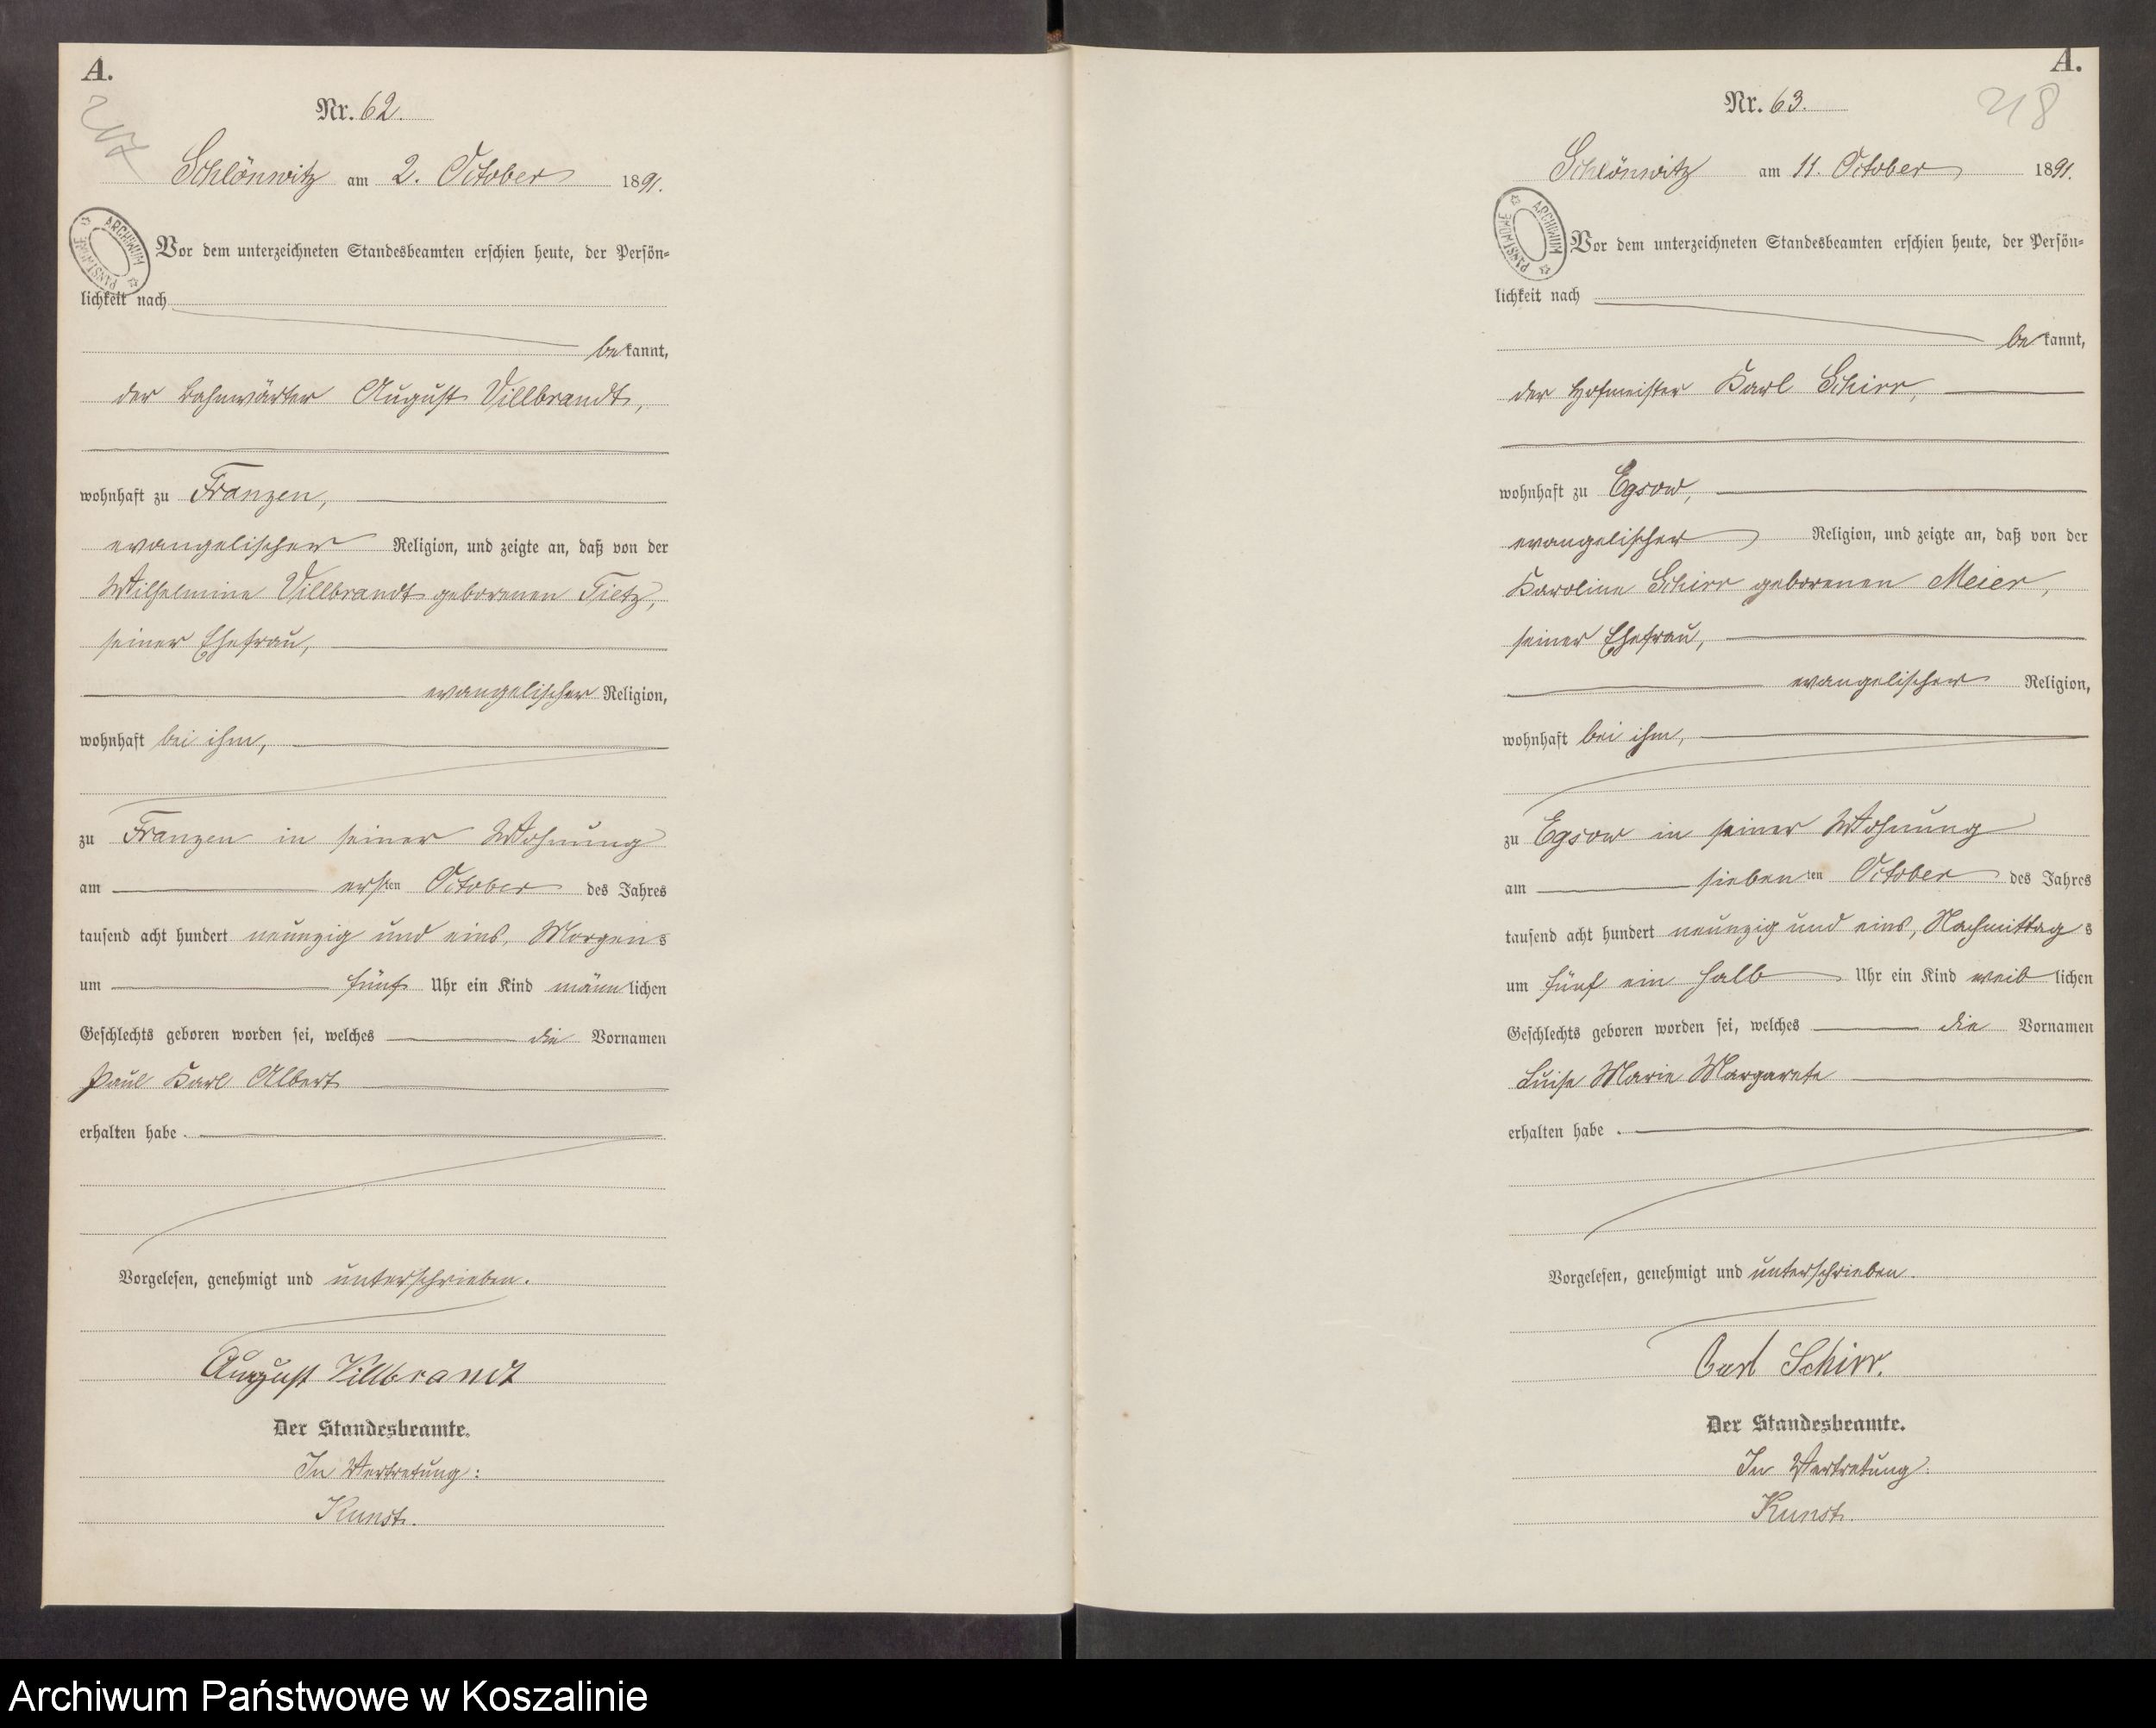 A.
Nr. 62.
Schlönwitz am 2. October 1891.
ARCHIWUM PAŃSTWOWE
Vor dem unterzeichneten Standesbeamten erschien heute, der Persön=
lichkeit nach
bekannt,
der Bahnwärter August Villbrandt,
wohnhaft zu Franzen,
evangelischer Religion, und zeigte an, daß von der
Wilhelmine Villbrandt geborenen Tietz,
seiner Ehefrau,
evangelischer Religion,
wohnhaft bei ihm,
zu Franzen in seiner Wohnung
am ersten October des Jahres
tausend acht hundert neunzig und eins, Morgens
um fünf Uhr ein Kind männlichen
Geschlechts geboren worden sei, welches die Vornamen
Paul Karl Albert
erhalten habe.
Vorgelesen, genehmigt und unterschrieben.
August Villbrandt
Der Standesbeamte.
In Vertretung:
Kunst.
A.
218
Nr. 63.
Schlönwitz am 11. October 1891.
ARCHIWUM PAŃSTWOWE
Vor dem unterzeichneten Standesbeamten erschien heute, der Persön=
lichkeit nach
bekannt,
der Hofmeister Karl Schirr,
wohnhaft zu Egsow,
evangelischer Religion, und zeigte an, daß von der
Karoline Schirr geborenen Meier,
seiner Ehefrau,
evangelischer Religion,
wohnhaft bei ihm,
zu Egsow in seiner Wohnung
am siebenten October des Jahres
tausend acht hundert neunzig und eins, Nachmittags
um fünf ein halb Uhr ein Kind weiblichen
Geschlechts geboren worden sei, welches die Vornamen
Luise Marie Margarete
erhalten habe.
Vorgelesen, genehmigt und unterschrieben.
Carl Schirr.
Der Standesbeamte.
In Vertretung:
Kunst.
Archiwum Państwowe w Koszalinie